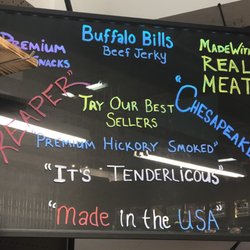 Buffalo Bills
Beef Jerky
PREMIUM
SNACKS
MADE WITH
REAL
MEAT
"REAPER"
TRY OUR BEST
SELLERS
"CHESAPEAKE
"PREMIUM HICKORY SMOKED"
"IT'S TENDERLICOUS"
"made in the USA"